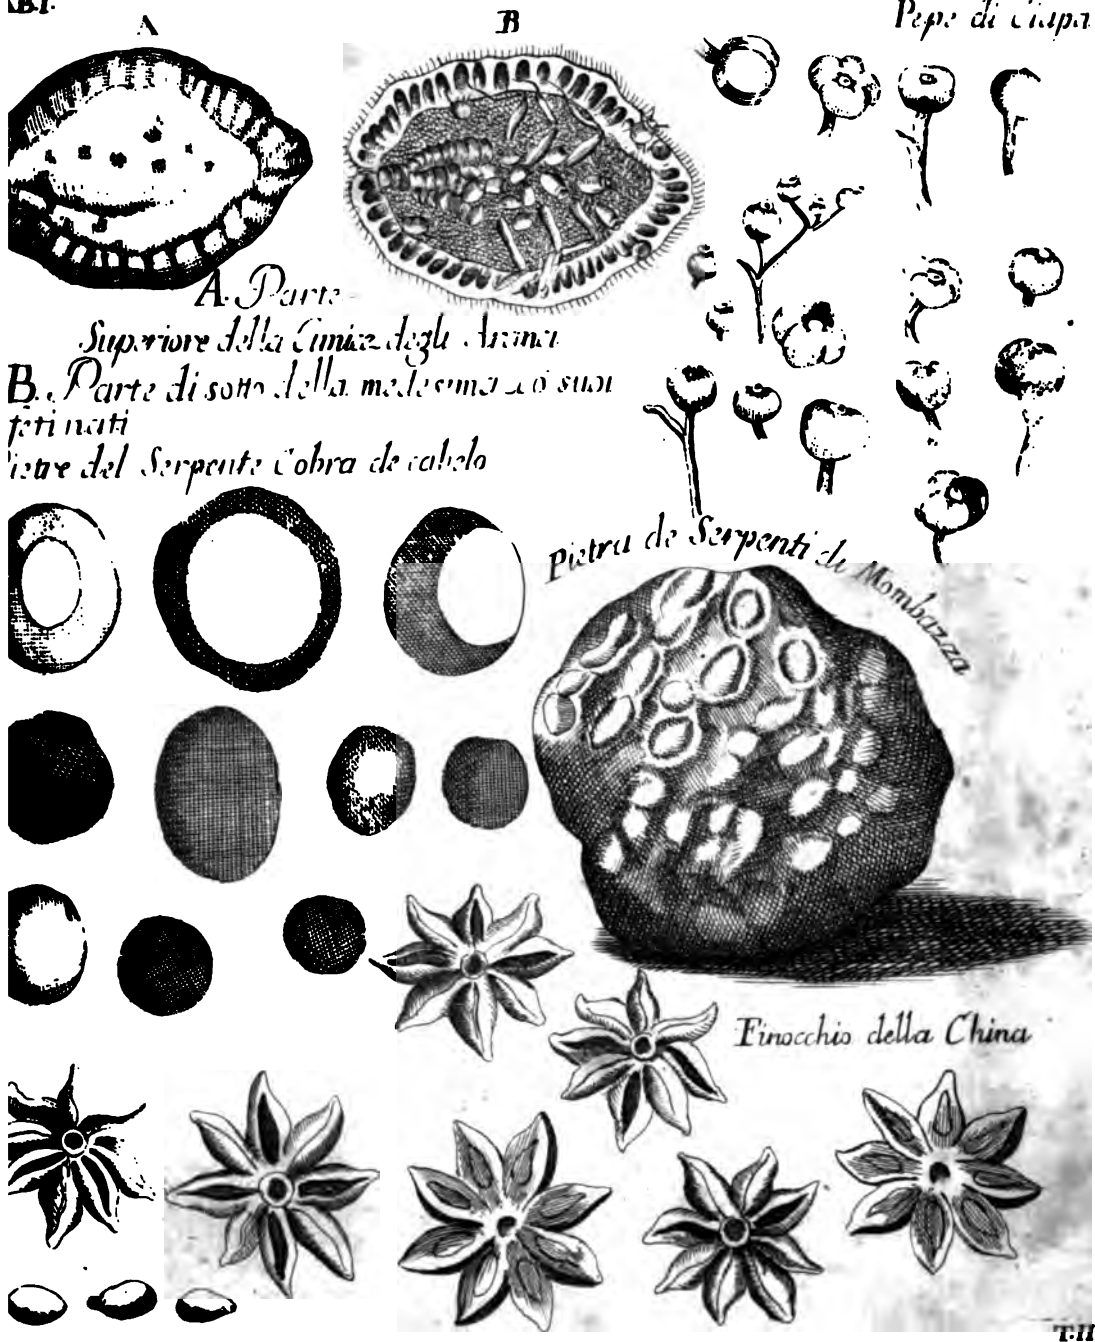 A
B
Pepe di Ciapa
A. Parte
Superiore della Cimice degli
B. Parte di sotto della medesima suoi
feti nati
Pietre del Serpente Cobra de cabelo
Pietra de Serpenti di Mombazza
Finocchio della China